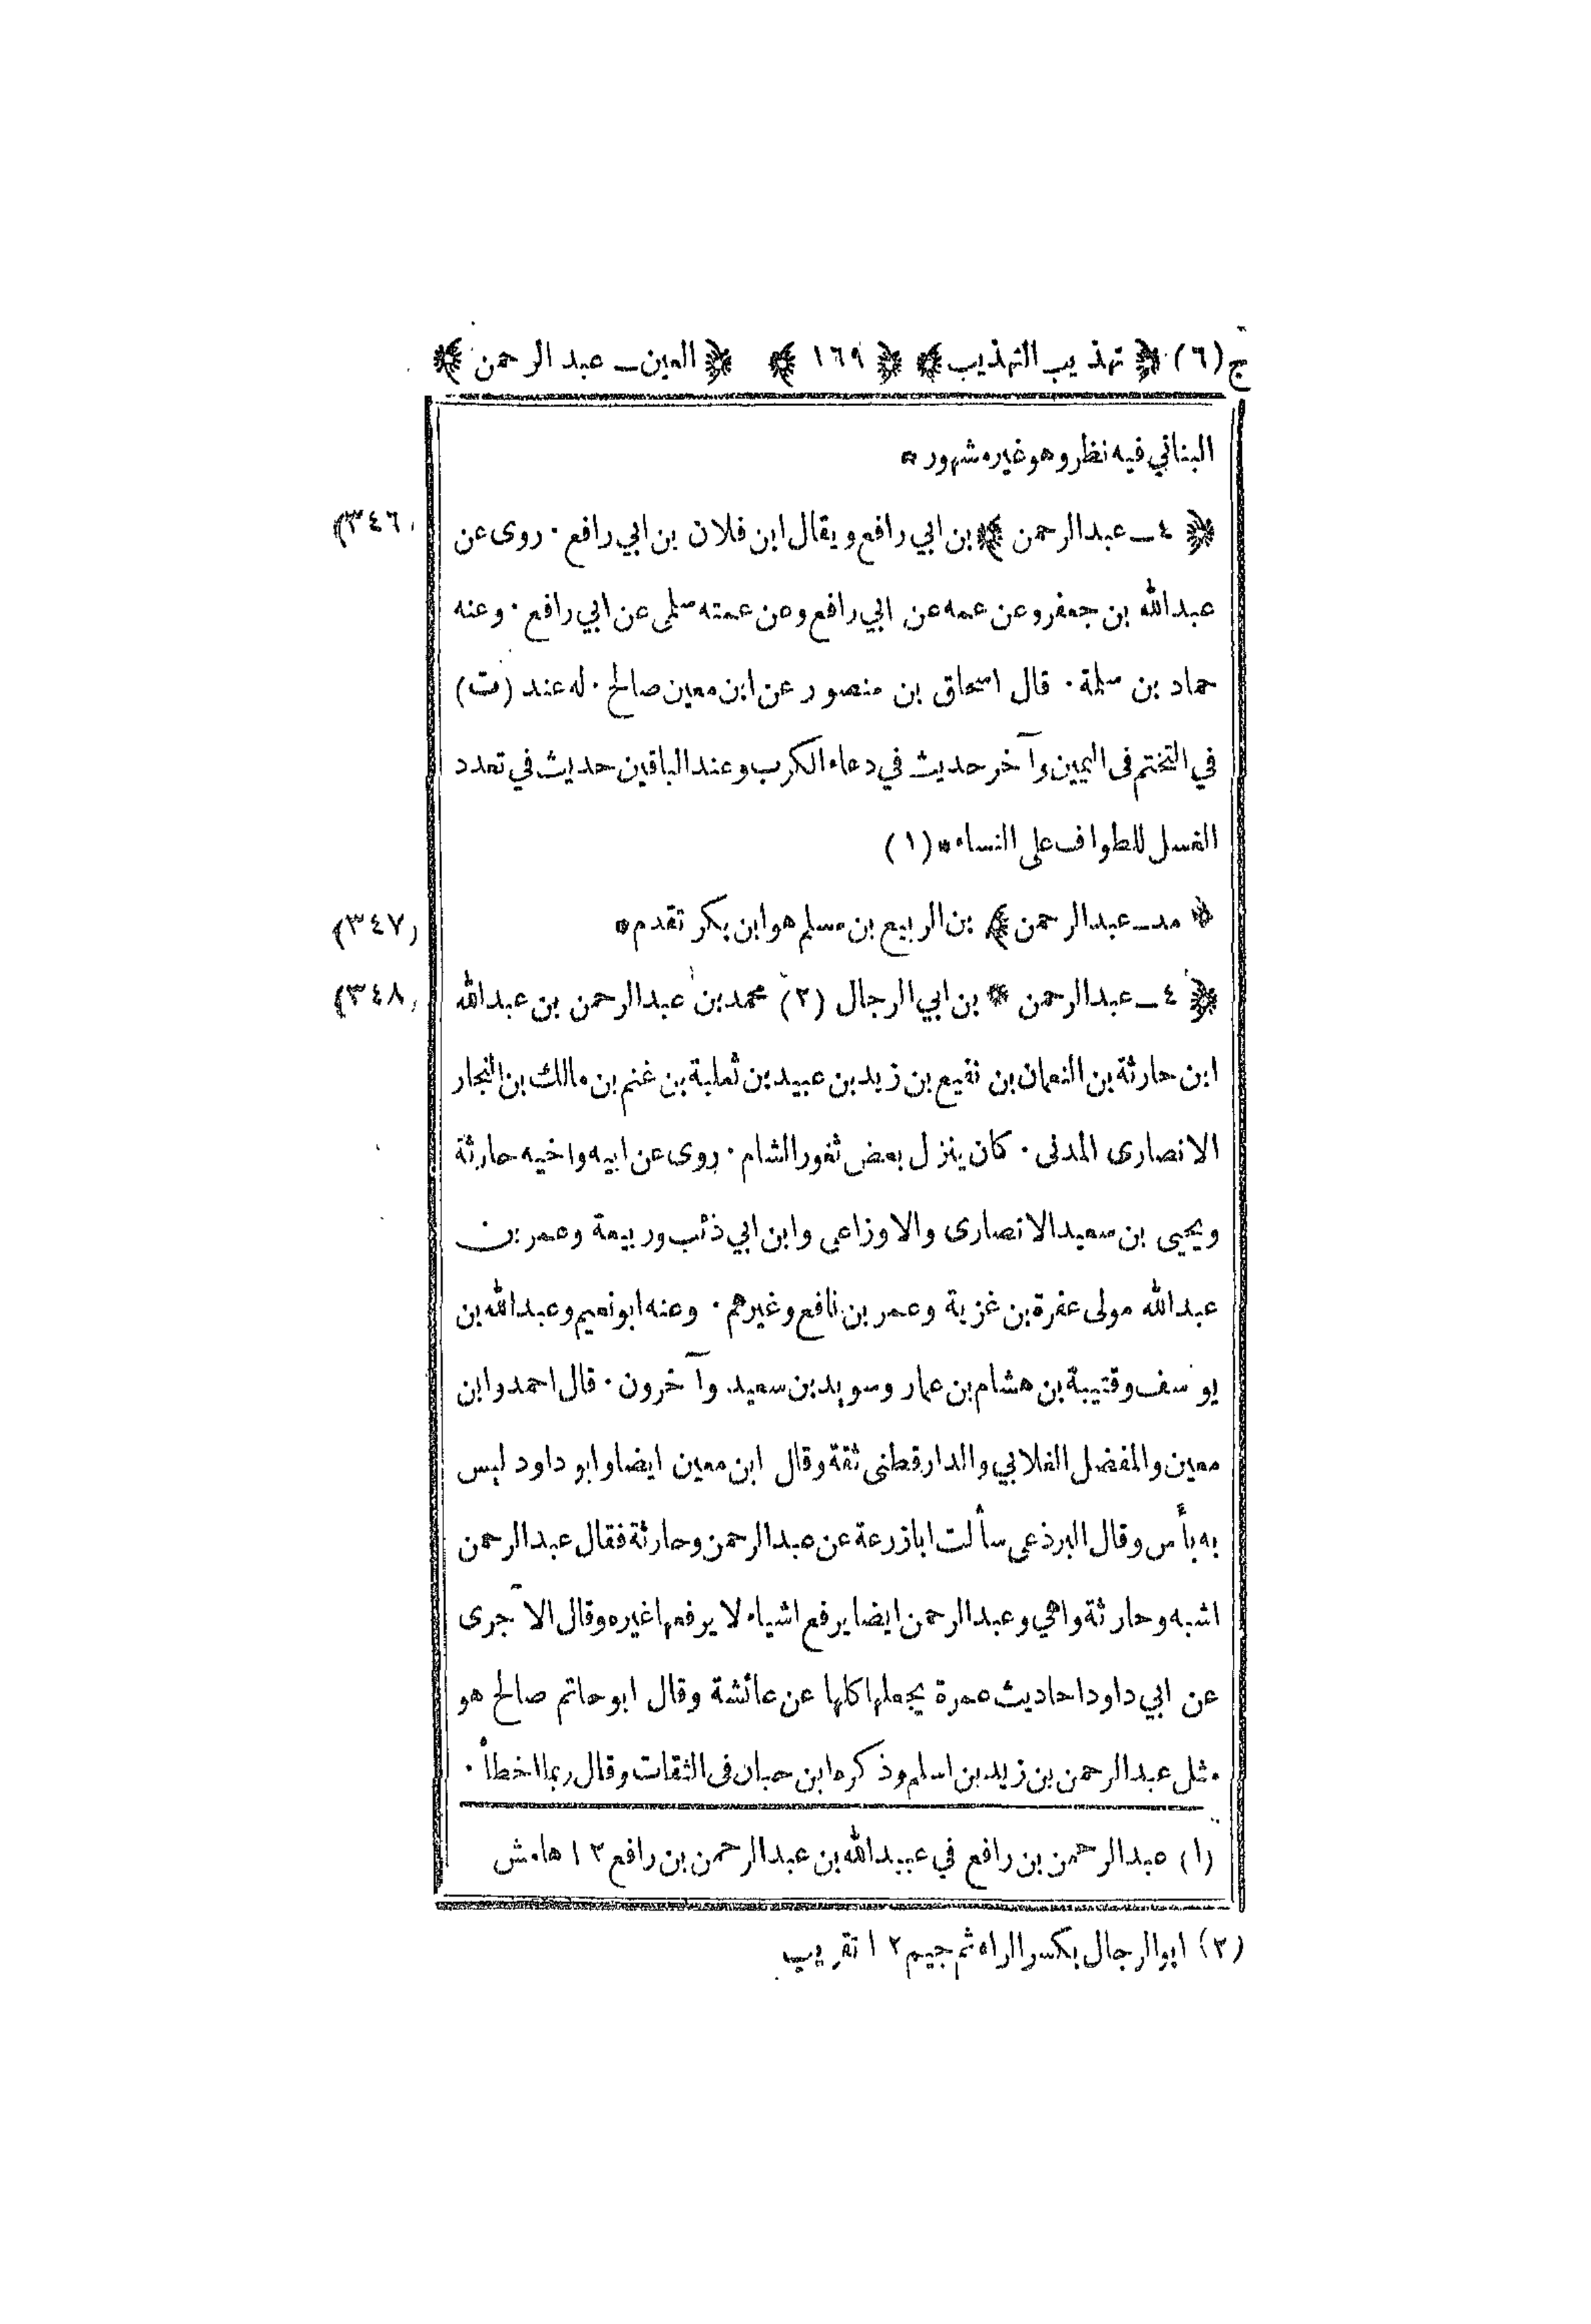 ج (٦) ﴿ تهذيب التهذيب ﴾ ﴿ ١٦٩ ﴾ ﴿ العين ـ عبد الرحمن ﴾
البناني فيه نظر وهو غير مشهور *
﴿ ٤ ـ عبد الرحمن ﴾ بن ابي رافع ويقال ابن فلان بن ابي رافع . روى عن (٣٤٦)
عبد الله بن جعفر وعن عمه عن ابي رافع وعن عمته سلمى عن ابي رافع . وعنه
حماد بن سلمة . قال اسحاق بن منصور عن ابن معين صالح . له عند (ت)
في التختم فى اليمين وآخر حديث في دعاء الكرب وعند الباقين حديث في تعدد
الغسل للطواف على النساء * (١)
* مد ـ عبد الرحمن ﴾ بن الربيع بن مسلم هو ابن بكر تقدم * (٣٤٧)
﴿ ٤ ـ عبد الرحمن * بن ابي الرجال (٢) محمد بن عبد الرحمن بن عبد الله (٣٤٨)
ابن حارثة بن النعمان بن نفيع بن زيد بن عبيد بن ثعلبة بن غنم بن مالك بن النجار
الانصارى المدنى . كان ينزل بعض ثغور الشام . روى عن ابيه واخيه حارثة
ويحيى بن سعيد الانصارى والاوزاعى وابن ابي ذئب وربيعة وعمر بن
عبد الله مولى عفرة بن غزية وعمر بن نافع وغيرهم . وعنه ابو نعيم وعبد الله بن
يوسف وقتيبة بن هشام بن عمار وسويد بن سعيد وآخرون . قال احمد وابن
معين والمفضل الغلابي والدارقطنى ثقة وقال ابن معين ايضا وابو داود ليس
به بأس وقال البرذعى سألت ابا زرعة عن عبد الرحمن وحارثة فقال عبد الرحمن
اشبه وحارثة واهي وعبد الرحمن ايضا يرفع اشياء لا يرفعها غيره وقال الآجرى
عن ابي داود احاديث عمرة يجعلها كلها عن عائشة وقال ابو حاتم صالح هو
مثل عبد الرحمن بن زيد بن اسلم وذكره ابن حبان فى الثقات وقال ربما اخطأ .
(١) عبد الرحمن بن رافع في عبيد الله بن عبد الرحمن بن رافع ١٢ هامش
(٢) ابو الرجال بكسر الراء ثم جيم ١٢ تقريب